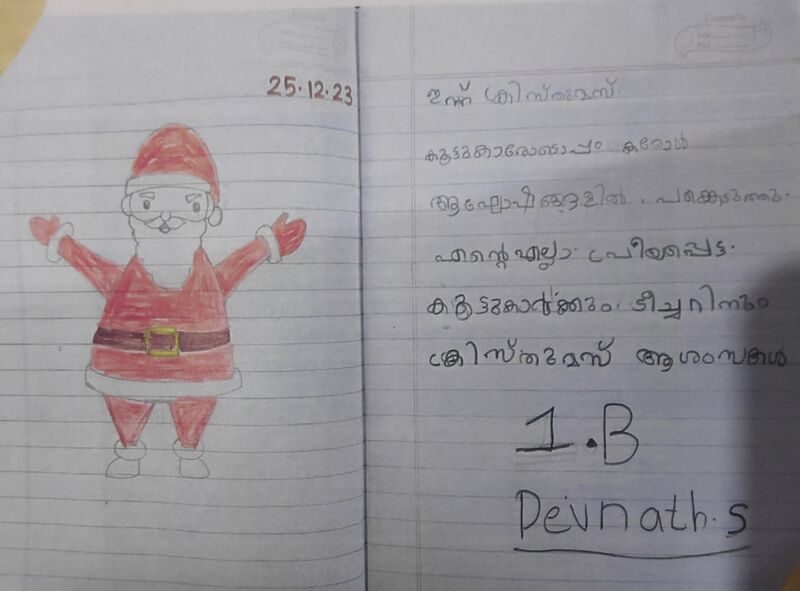 25.12.23
ഇന്ന് ക്രിസ്തുമസ്.
കൂട്ടുകാരോടൊപ്പം കരോൾ
ആഘോഷങ്ങളിൽ പങ്കെടുത്തു.
എന്റെ എല്ലാ പ്രീയപ്പെട്ട
കൂട്ടുകാർക്കും ടീച്ചറിനും
ക്രിസ്തുമസ് ആശംസകൾ
1.B
Devnath.S